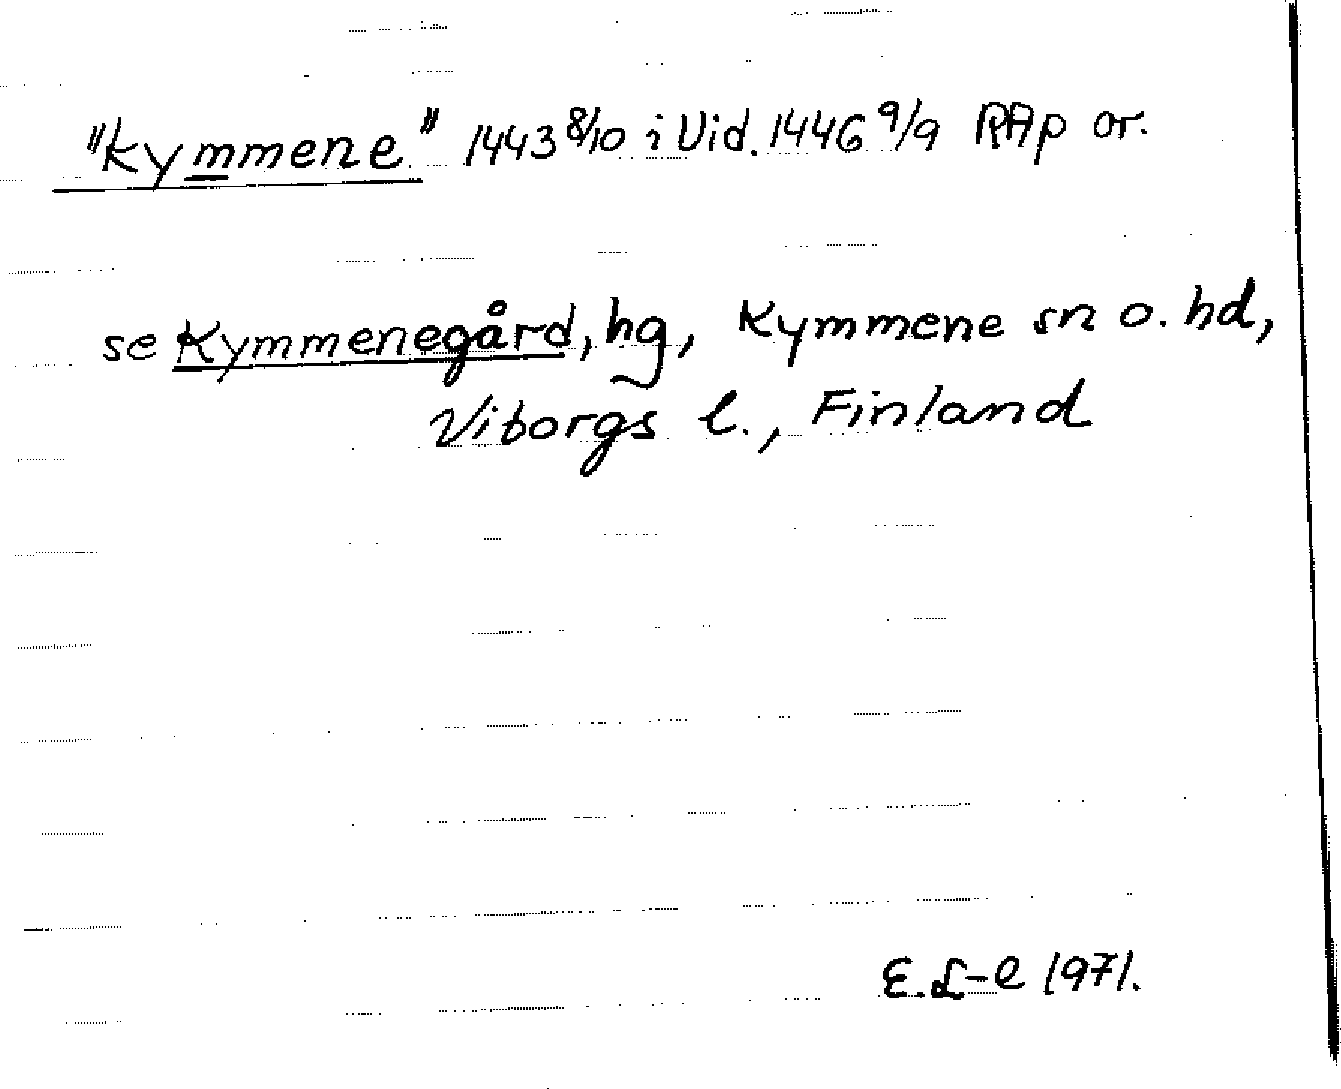 "kymmene" 1443 8/10 i Vid. 1446 9/9 RAp or.
se Kymmenegård, hg, Kymmene sn o. hd,
Viborgs l., Finland
E.L-e 1971.